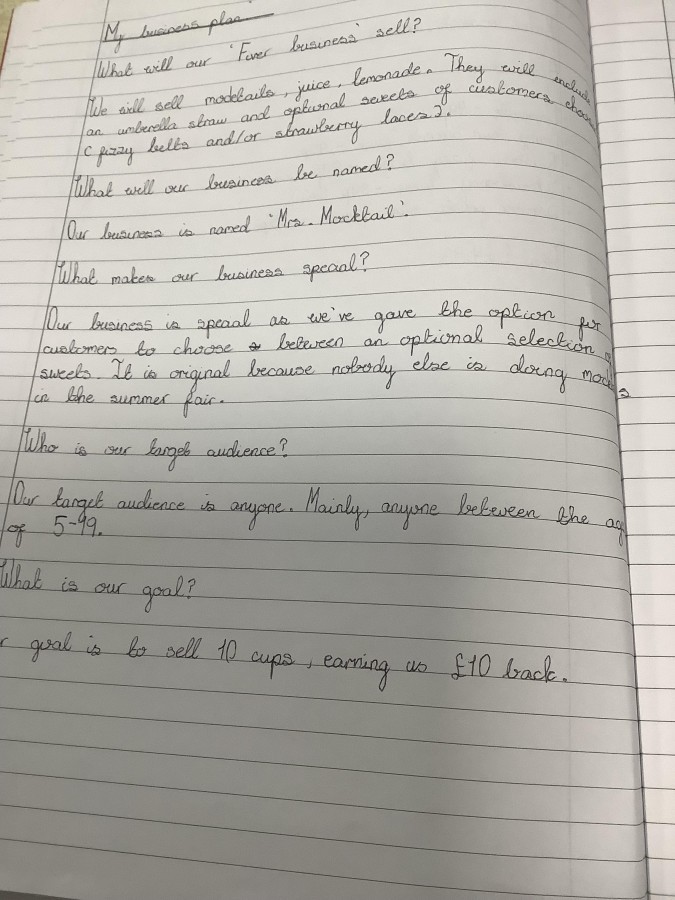 My business plan
What will our 'Fiver business' sell?
We will sell mocktails, juice, lemonade. They will include
an umberella straw and optional sweets of customers choo
( fizzy belts and/or strawberry laces).
What will our business be named?
Our business is named 'Mrs. Mocktail'.
What makes our business special?
Our business is special as we've gave the option for
customers to choose between an optional selection of
sweets. It is original because nobody else is doing mock s
in the summer fair.
Who is our target audience?
Our target audience is anyone. Mainly, anyone between the ag
of 5-99.
What is our goal?
r goal is to sell 10 cups, earning us £10 back.